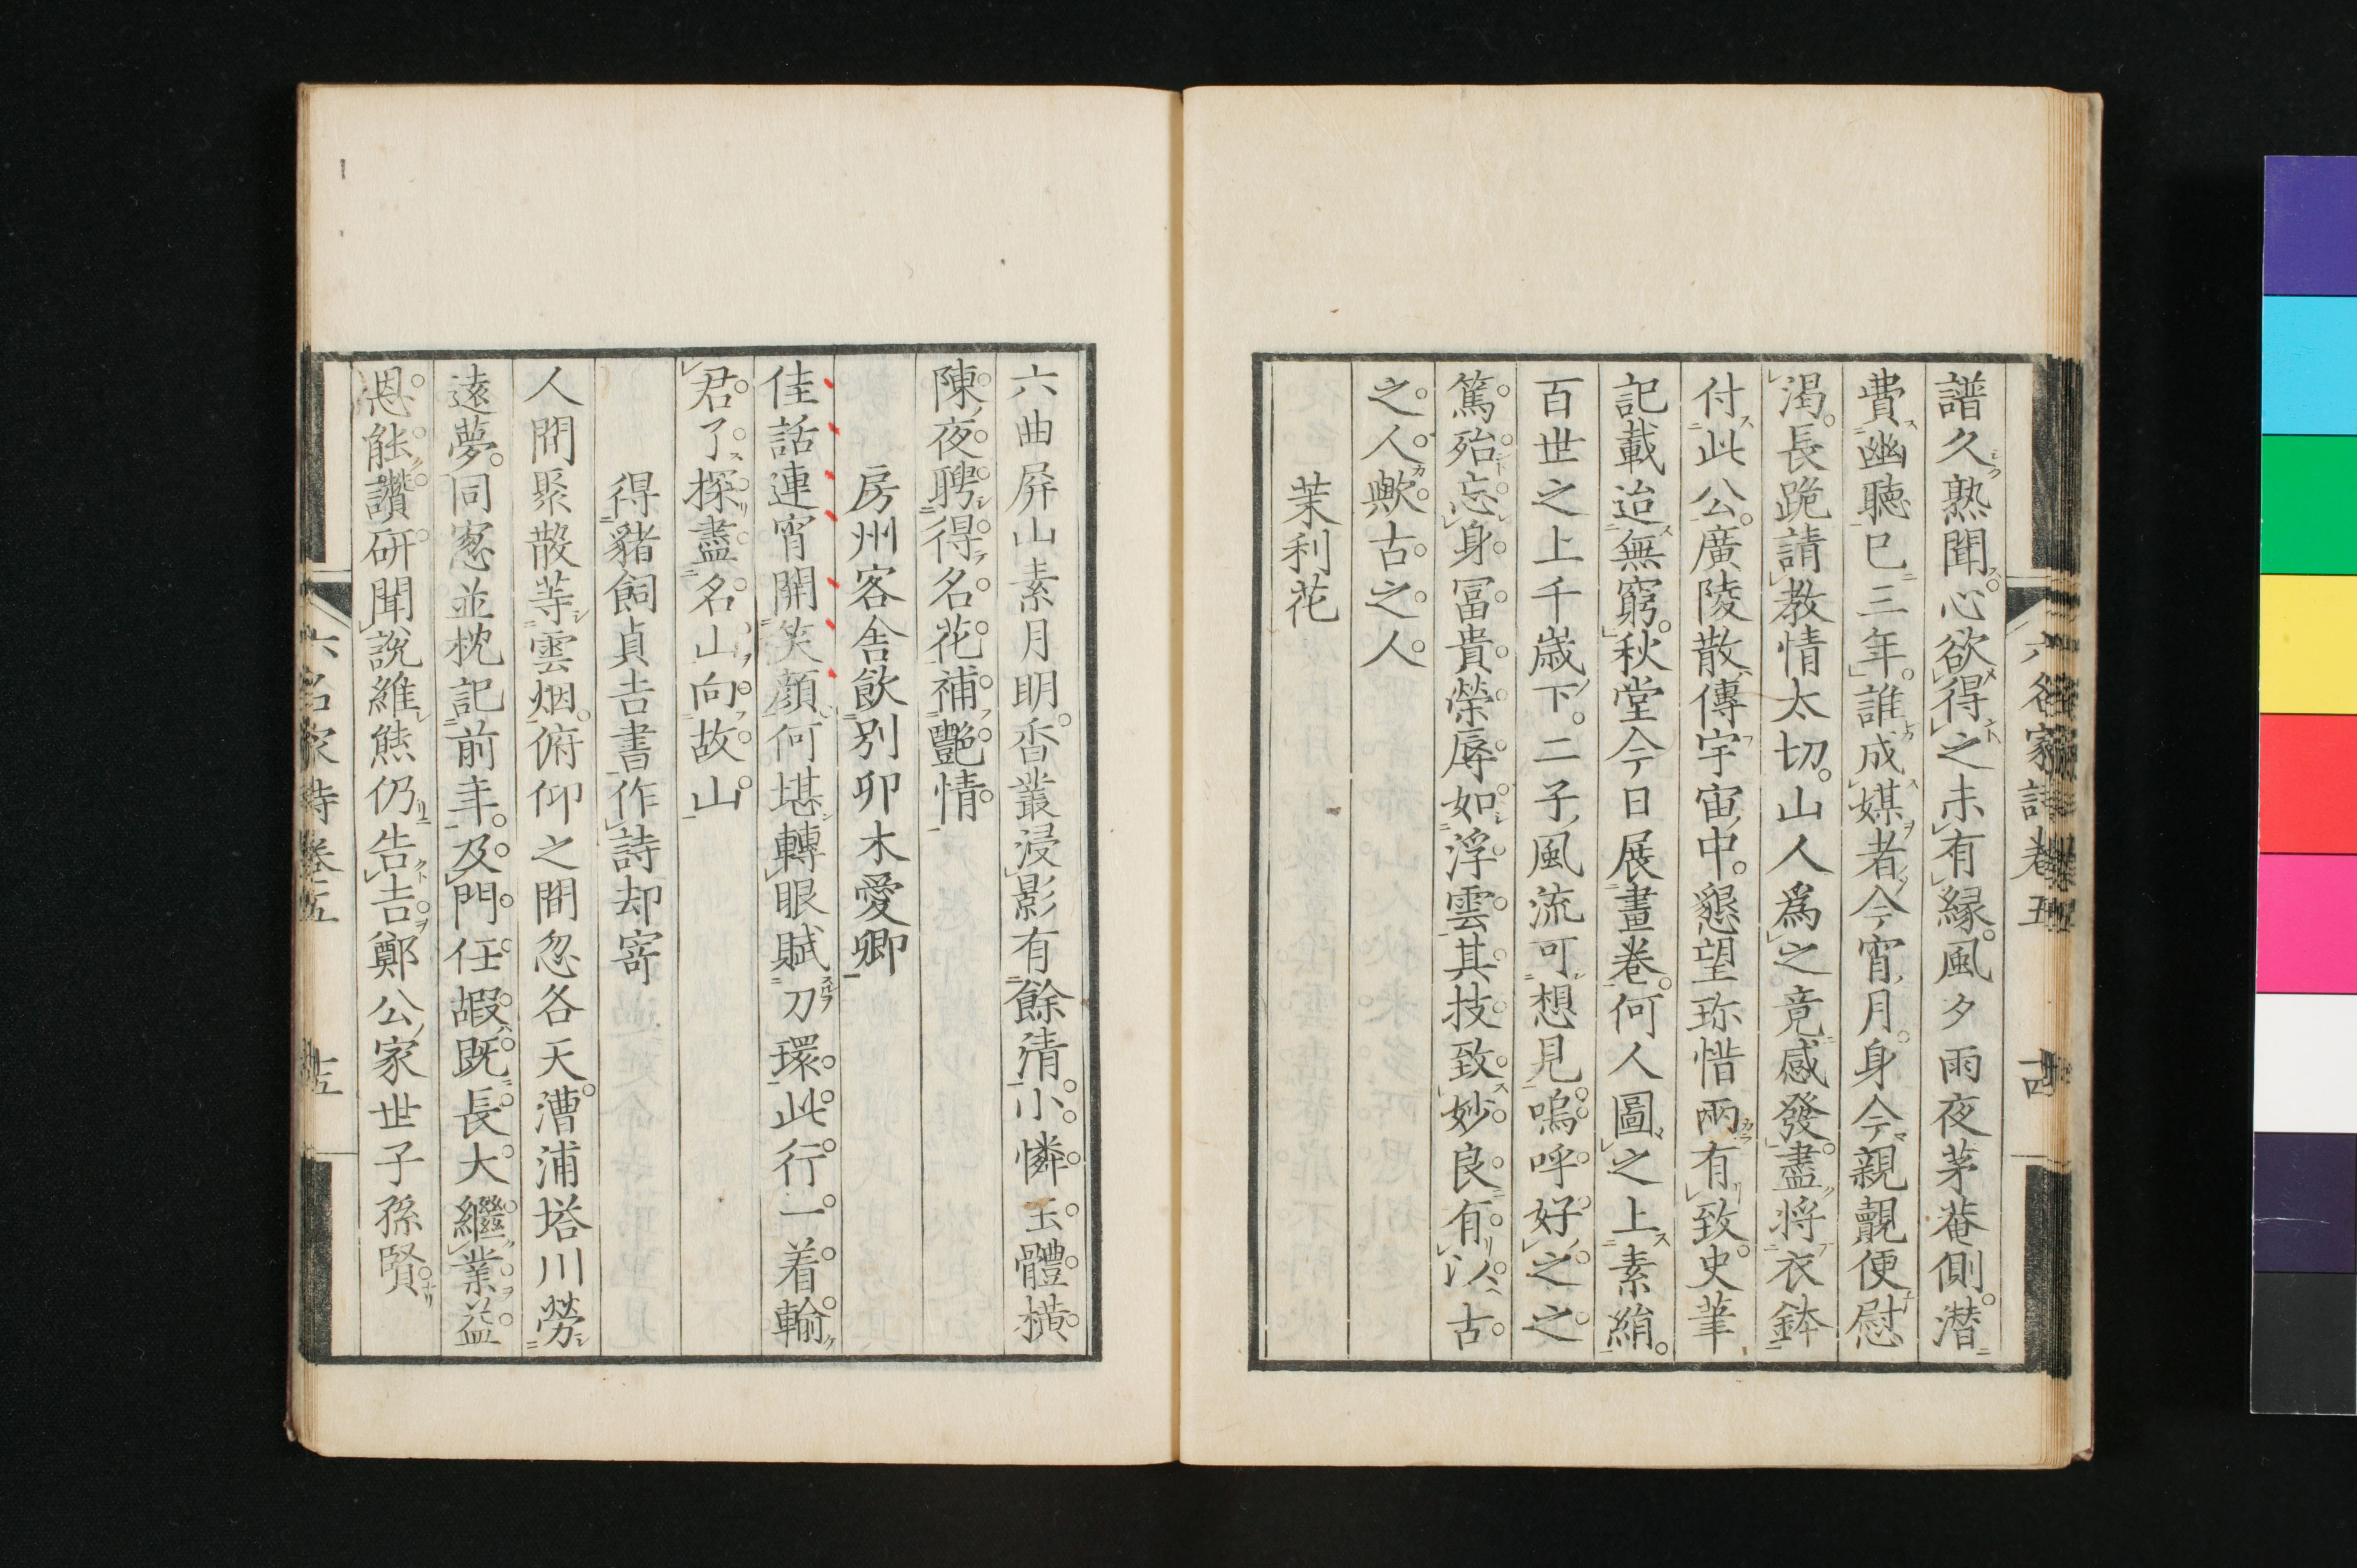 六名家詩卷五
譜久熟聞心欲得之未有縁風夕雨夜茅菴側潜
費幽聴巳三年誰成媒者今宵月身今親覿便慰
渇長跪請教情太切山人爲之竟感發盡將衣鉢
付此公廣陵散傳宇宙中懇望珎惜兩有致史筆
記載迨無窮秋堂今日展畫巻何人圖之上素絹
百世之上千歳下二子風流可想見嗚呼好之之
篤殆忘身冨貴榮辱如浮雲其技致妙良有以古
之人歟古之人
茉利花
六曲屏山素月明香叢浸影有餘清小憐玉體横
陳夜聘得名花補艶情
房州客舎飲別卯木愛卿
佳話連宵開笑顔何堪轉眼賦刀環此行一着輸
君了探盡名山向故山
得豬飼貞吉書作詩却寄
人間聚散等雲烟俯仰之間忽各天漕浦塔川勞
遠夢同窓並枕記前年及門任嘏既長大繼業益
恩能讚研聞說維熊仍告吉鄭公家世子孫賢
六名家詩卷五